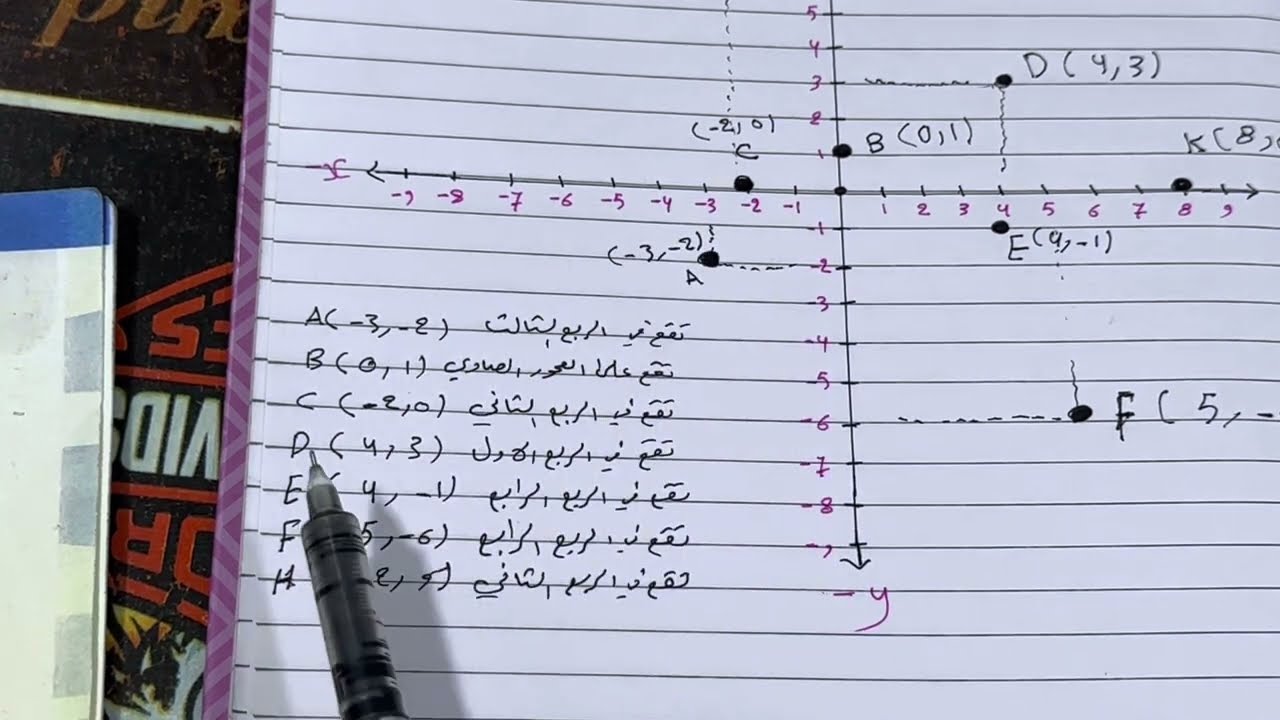 5
4
3
D (4,3)
2
(-2,0)
C
1
B (0,1)
K(8,
-x
-9 -8 -7 -6 -5 -4 -3 -2 -1 1 2 3 4 5 6 7 8 9
-1
E (4,-1)
(-3,-2)
A
-2
-3
-4
-5
-6
F ( 5, -
-7
-8
-9
-y
A(-3,-2) تقع في الربع الثالث
B (0,1) تقع على المحور الصادي
C (-2,0) تقع في الربع الثاني
D (4,3) تقع في الربع الاول
E ( 4, -1) تقع في الربع الرابع
F 5,-6) تقع في الربع الرابع
H 2, تقع في الربع الثاني
VIDS